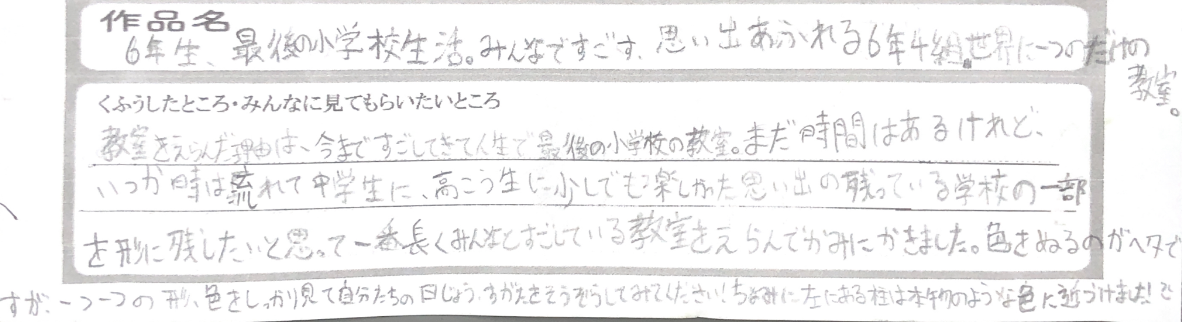 作品名
6年生、最後の小学校生活。みんなですごす、思い出あふれる6年4組。世界に一つのだけの
教室。
くふうしたところ・みんなに見てもらいたいところ
教室をえらんだ理由は、今まですごしてきて人生で最後の小学校の教室。まだ時間はあるけれど、
いつか時は流れて中学生に、高こう生に少しでも楽しかった思い出の残っている学校の一部
を形に残したいと思って一番長くみんなとすごしている教室をえらんでかみにかきました。色をぬるのがヘタで
すが、一つ一つの形、色をしっかり見て自分たちの日じょう、すがたをそうぞうしてみてください!ちなみに左にある柱は本物のような色に近づけました!で